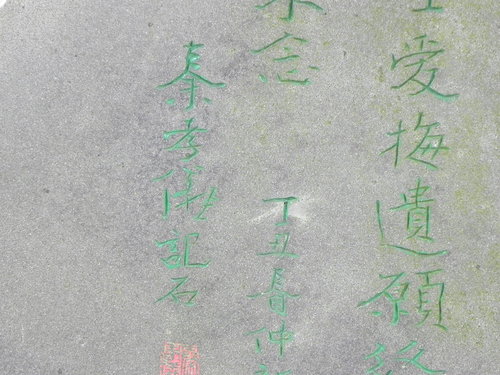 愛梅遺願
念
丁丑春仲
秦孝儀記石